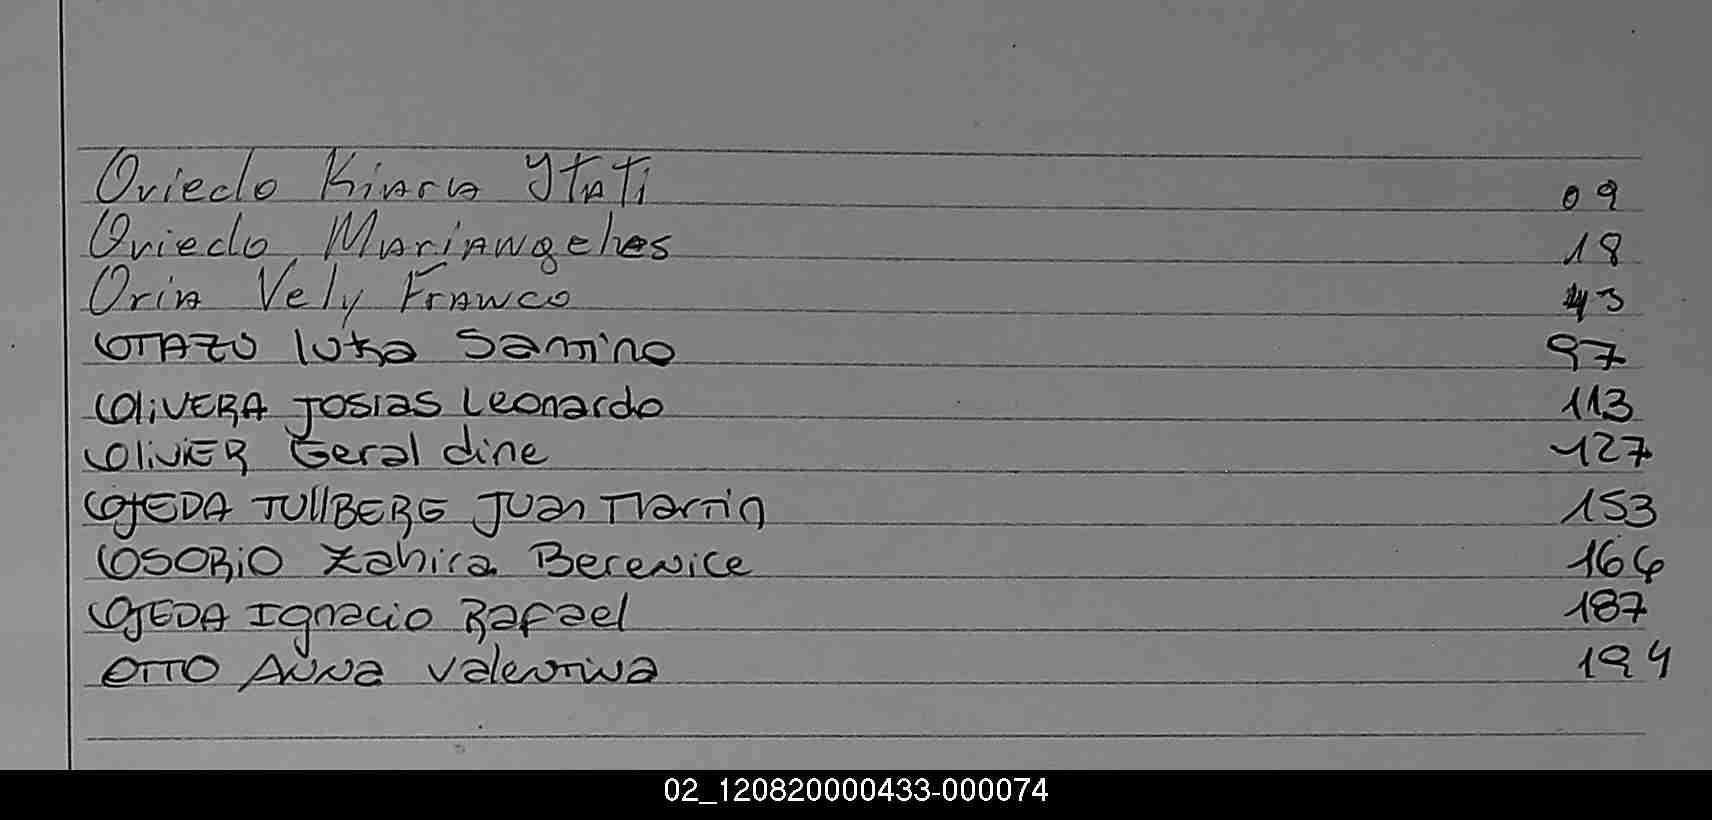 Oviedo Kiara Ytati 09
Oviedo Mariangeles 18
Oria Vely Franco 43
OTAZU luka Santino 97
OliVERA Josias Leonardo 113
OliViER Geraldine 127
OJEDA TUllBERG Juan Martin 153
OSORiO Zahira Berenice 166
OJEDA Ignacio Rafael 187
OTTO Anna Valentina 194
02_120820000433-000074